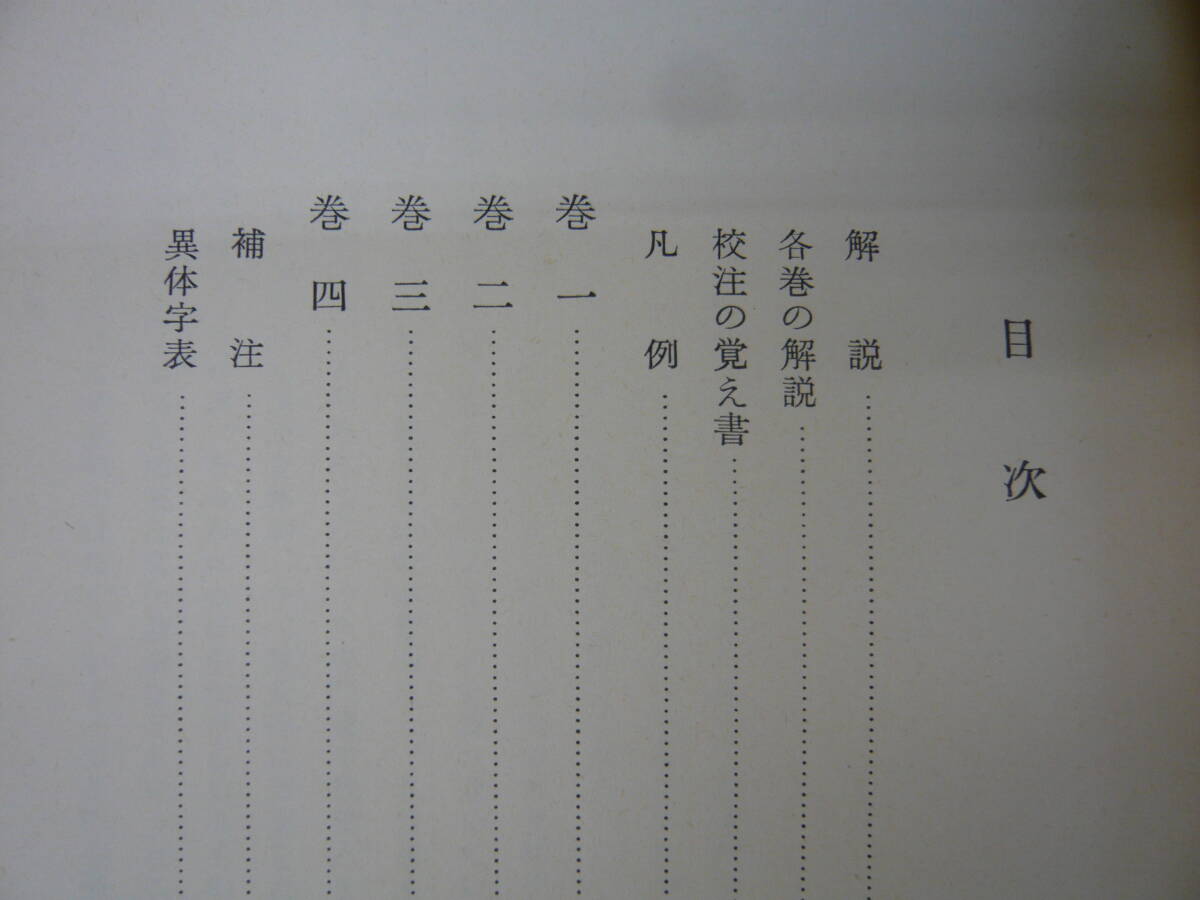 目次
解説
各巻の解説
校注の覚え書
凡例
巻一
巻二
巻三
巻四
補注
異体字表